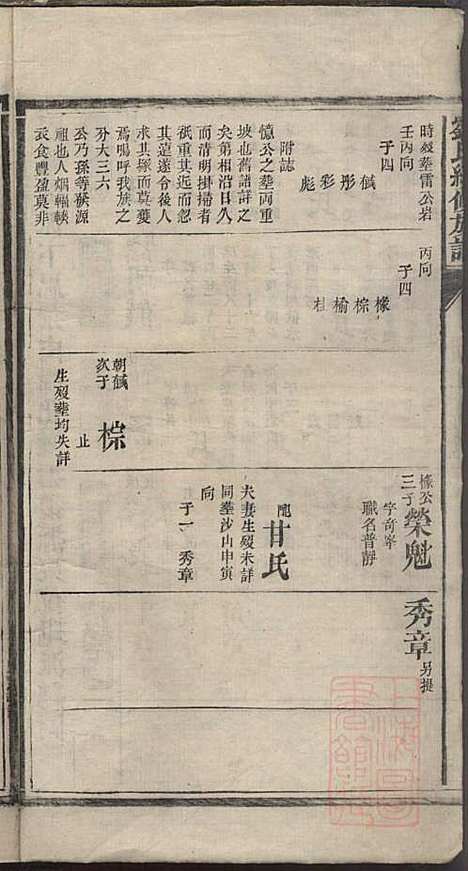 時歿塟雷公岩
壬丙向
子四
鹹 彤 彩 彪
附誌
憶公之塟兩重
坡也舊譜詳之
矣第相沿日久
而清明掛掃者
秖重其近而忽
其遠遂令後人
求其塚而莫蔓
焉嗚呼我族之
分大三六
公乃孫等族源
祖也人烟輻輳
衣食豐盈莫非
丙向
子四
椽 棕 榆 桂
朝鹹
次子
棕
止
生歿塟均失詳
椽公
三子
榮魁
字奇寧
職名普靜
配
甘氏
夫妻生歿未詳
同塟沙山申寅
向
子一 秀章
秀章
另提